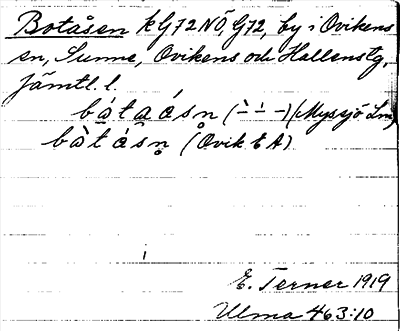 Botåsen k G72NÖ, G72, by i Ovikens
sn, Sunne, Ovikens och Hallens tg,
Jämtl. l.
bátaósn̥ (– –́ –) (Myssjö Lm)
bàtósn̥ (Ovik EA)
E. Terner 1919
Ulma 463:10